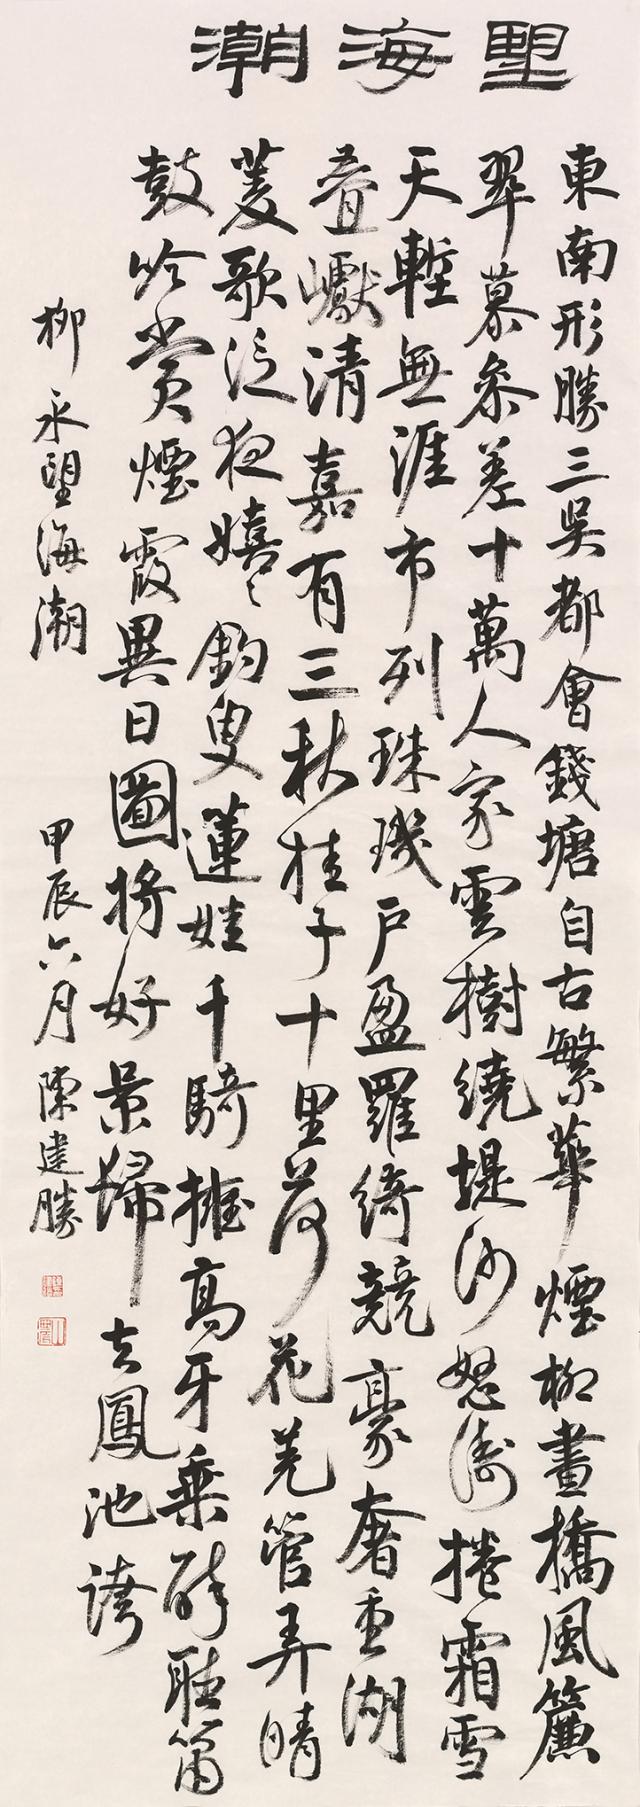 望海潮
東南形勝三吳都會錢塘自古繁華煙柳畫橋風簾
翠幕參差十萬人家雲樹繞堤沙怒濤捲霜雪
天塹無涯市列珠璣戶盈羅綺競豪奢重湖
疊巘清嘉有三秋桂子十里荷花羌管弄晴
菱歌泛夜嬉〻釣叟蓮娃千騎擁高牙乘醉聽簫
鼓吟賞煙霞異日圖將好景歸去鳳池誇
柳永望海潮
甲辰六月陳建勝